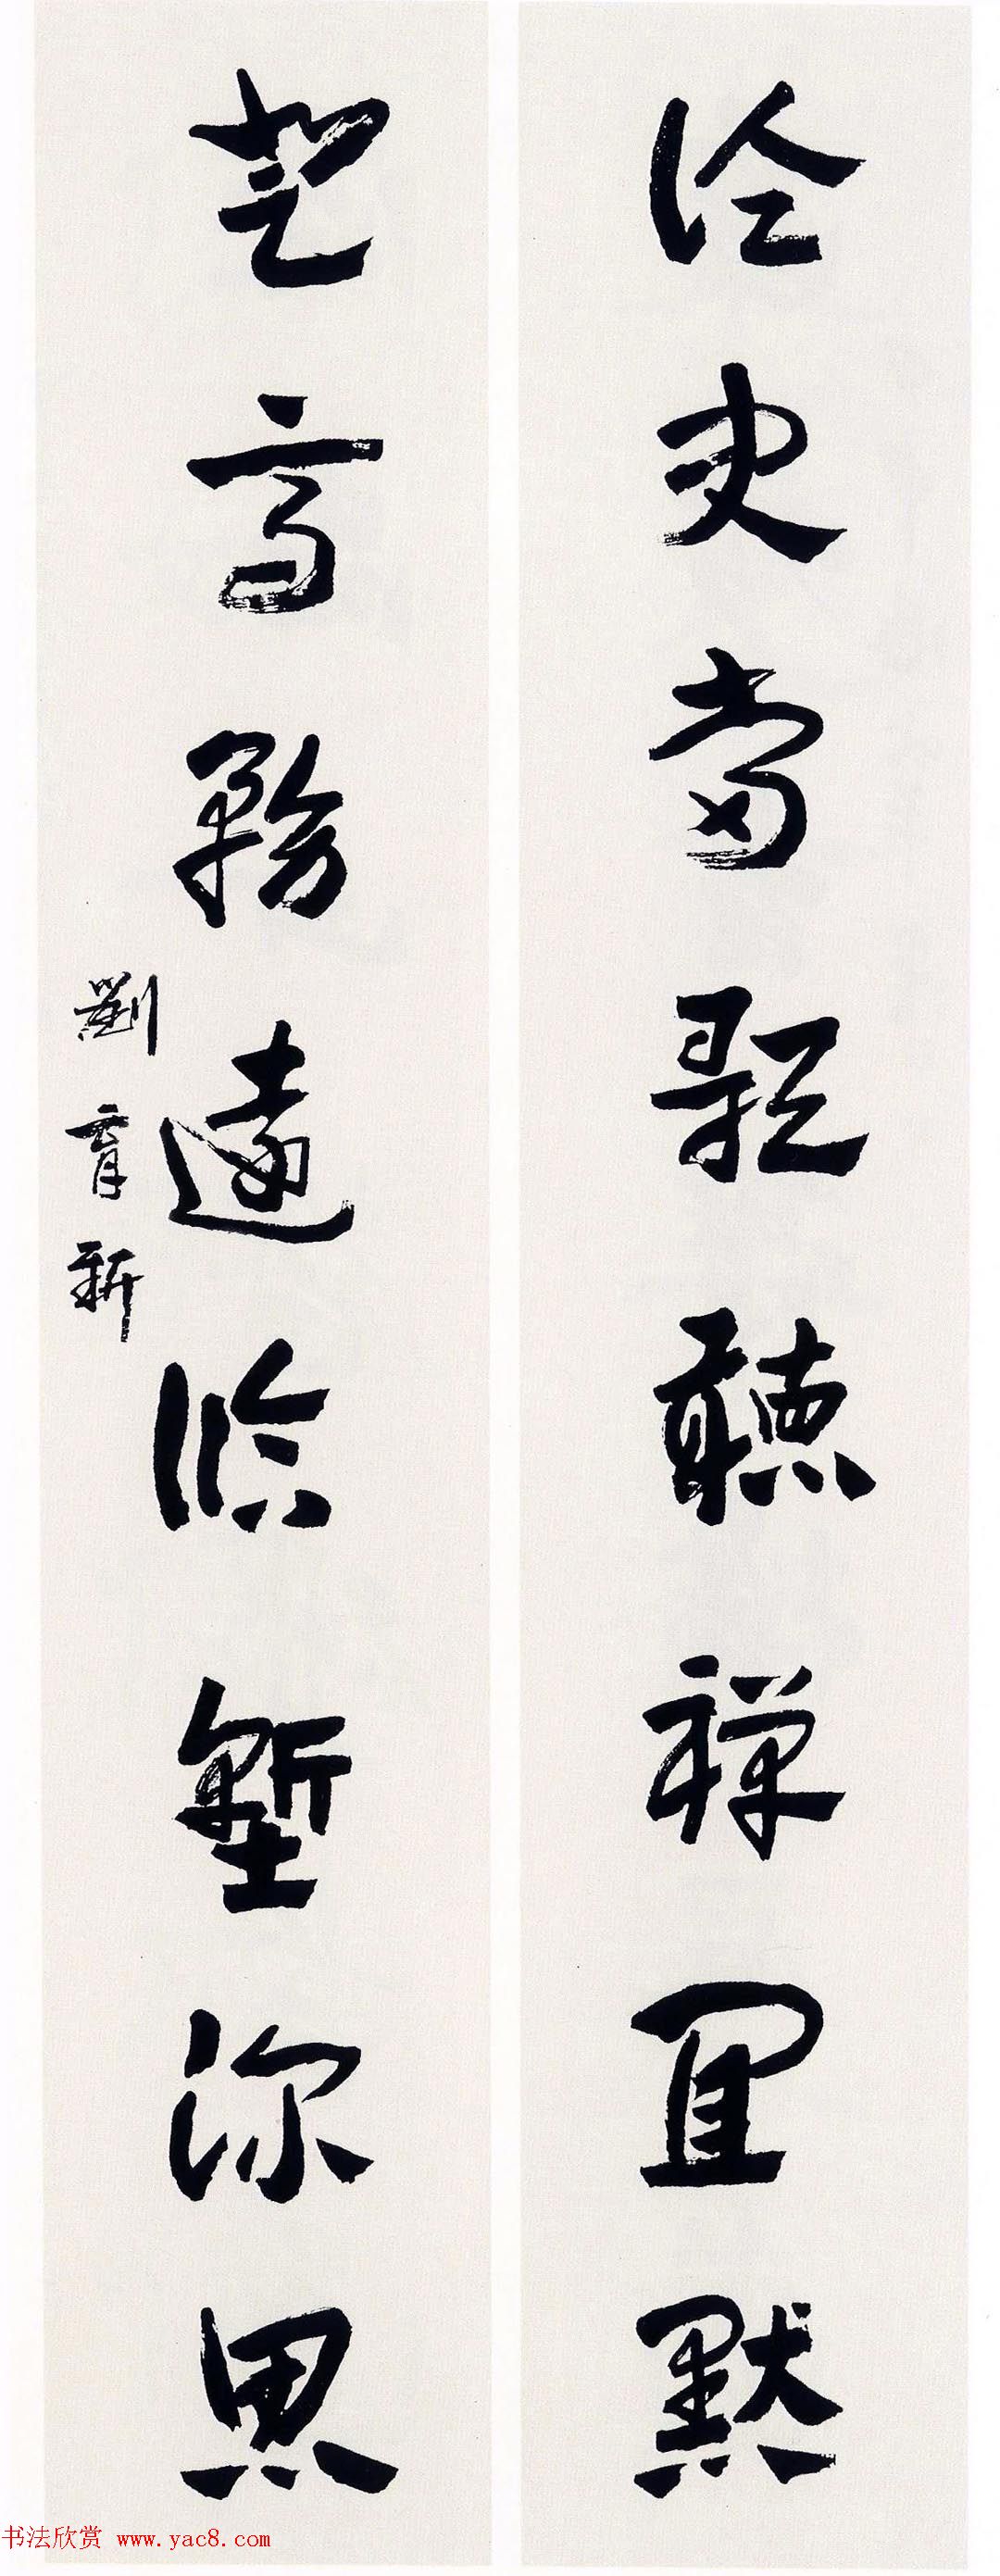 論史當歌聽禪宜默
登高務遠臨塹深思
劉育新
书法欣赏 www.yac8.com